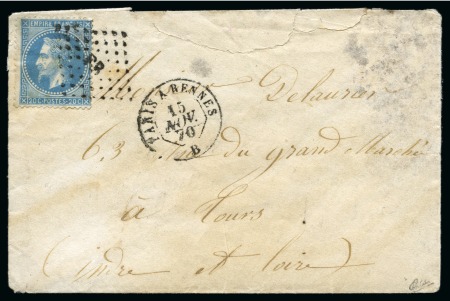 EMPIRE FRANÇAIS
20C POSTES 20C
PARIS A RENNES
15
NOV.
70
B
Delaurier
63 rue du grand Marché
à Tours
(indre et loire)